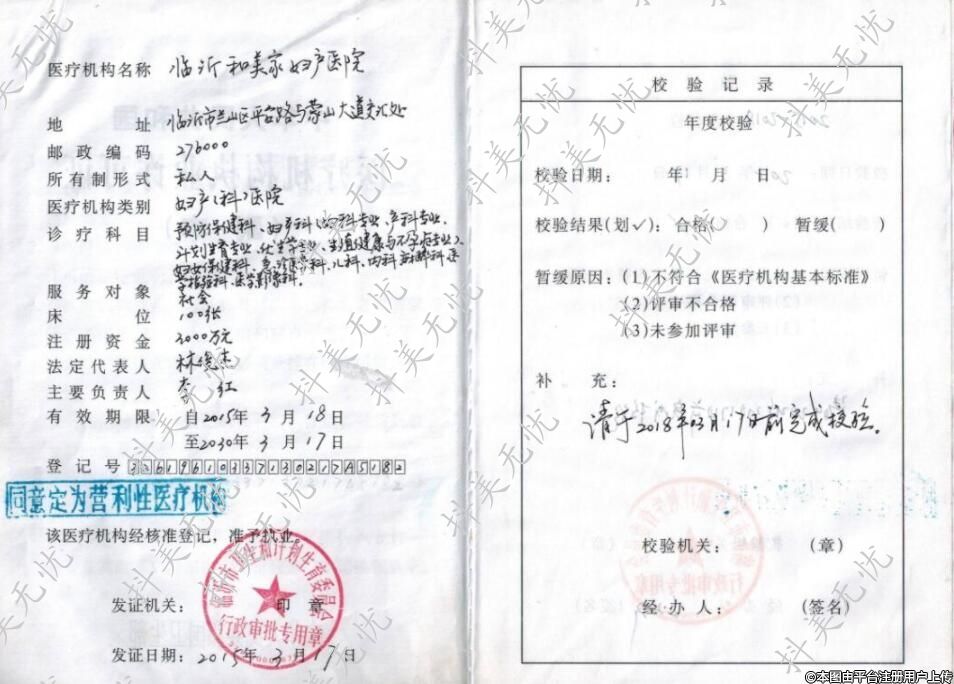 医疗机构名称 临沂和美家妇产医院
地 址 临沂市兰山区平台路与蒙山大道交汇处
邮政编码 276000
所有制形式 私人
医疗机构类别 妇产(科)医院
诊疗科目 预防保健科、妇产科(妇科专业、产科专业、
计划生育专业、优生学专业、生殖健康与不孕症专业)、
妇女保健科、儿科、内科、麻醉科、医
学检验科、医学影像科。
服务对象 社会
床 位 100张
注册资金 3000万元
法定代表人 林
主要负责人 红
有效期限 自2015年3月18日
至2030年3月17日
登记号
同意定为营利性医疗机构
该医疗机构经核准登记,准予执业。
临沂市卫生和计划生育委员会
行政审批专用章
发证机关: 印 章
发证日期: 2015年3月17日
校验记录
年度校验
校验日期: 年 月 日
校验结果(划√): 合格( ) 暂缓( )
暂缓原因:(1)不符合《医疗机构基本标准》
(2)评审不合格
(3)未参加评审
补 充:
请于2018年03月17日前完成校验。
校验机关: (章)
经 办 人: (签名)
抖美无忧
©本图由平台注册用户上传